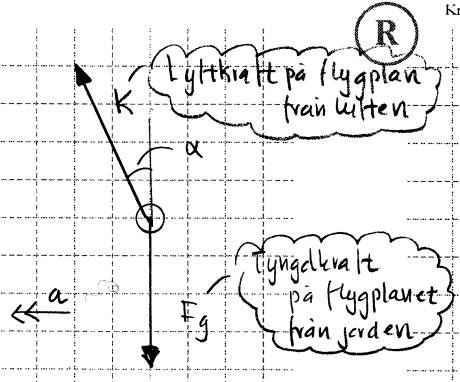 Kr
R
Lyftkraft på flygplan
från luften
K
α
Tyngdkraft
på flygplanet
från jorden
a
Fg